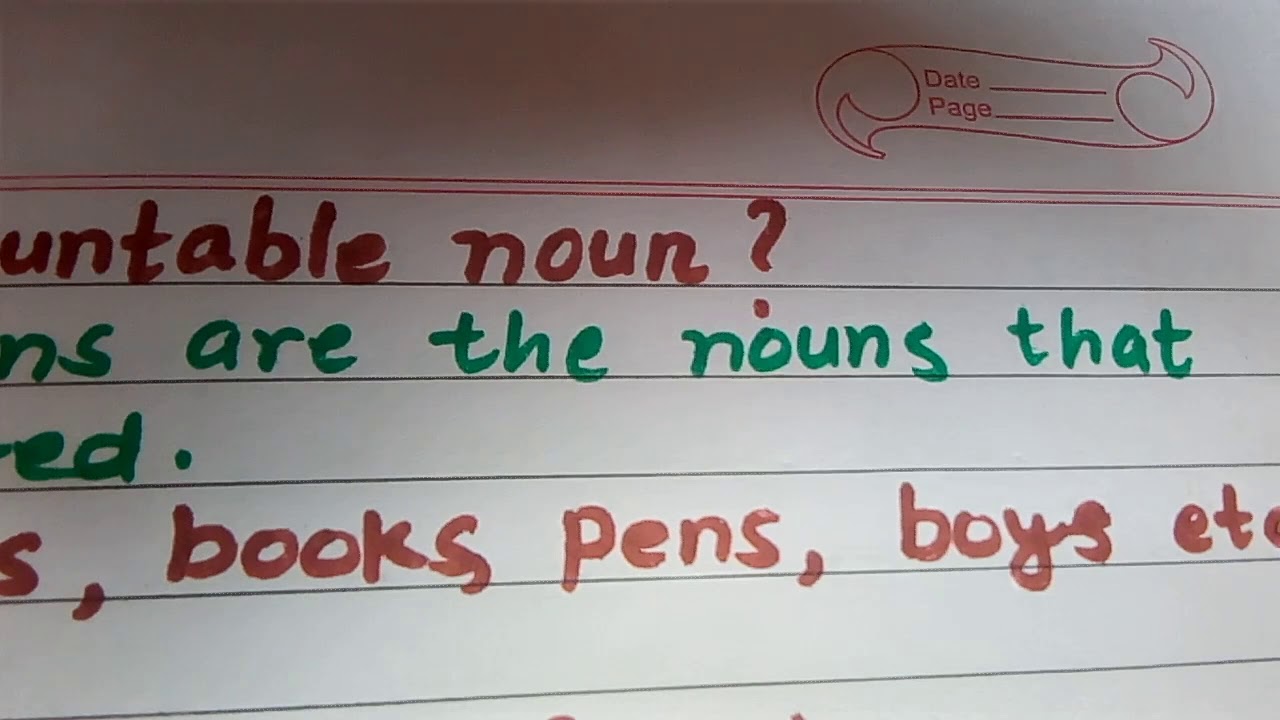 Date
Page
untable noun?
ns are the nouns that
ed.
s, books, pens, boys etc